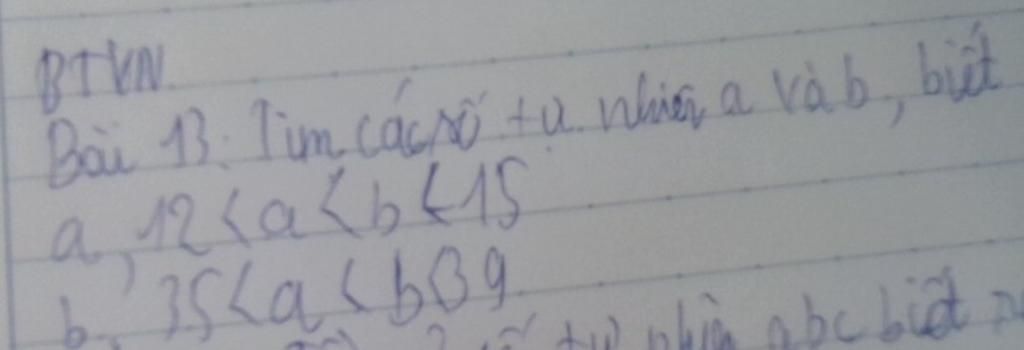 BTVN.
Bài 13: Tìm các số tự nhiên a và b, biết
a, 12 < a < b < 15
b, 35 < a < b 39
số tự nhiên abc biết